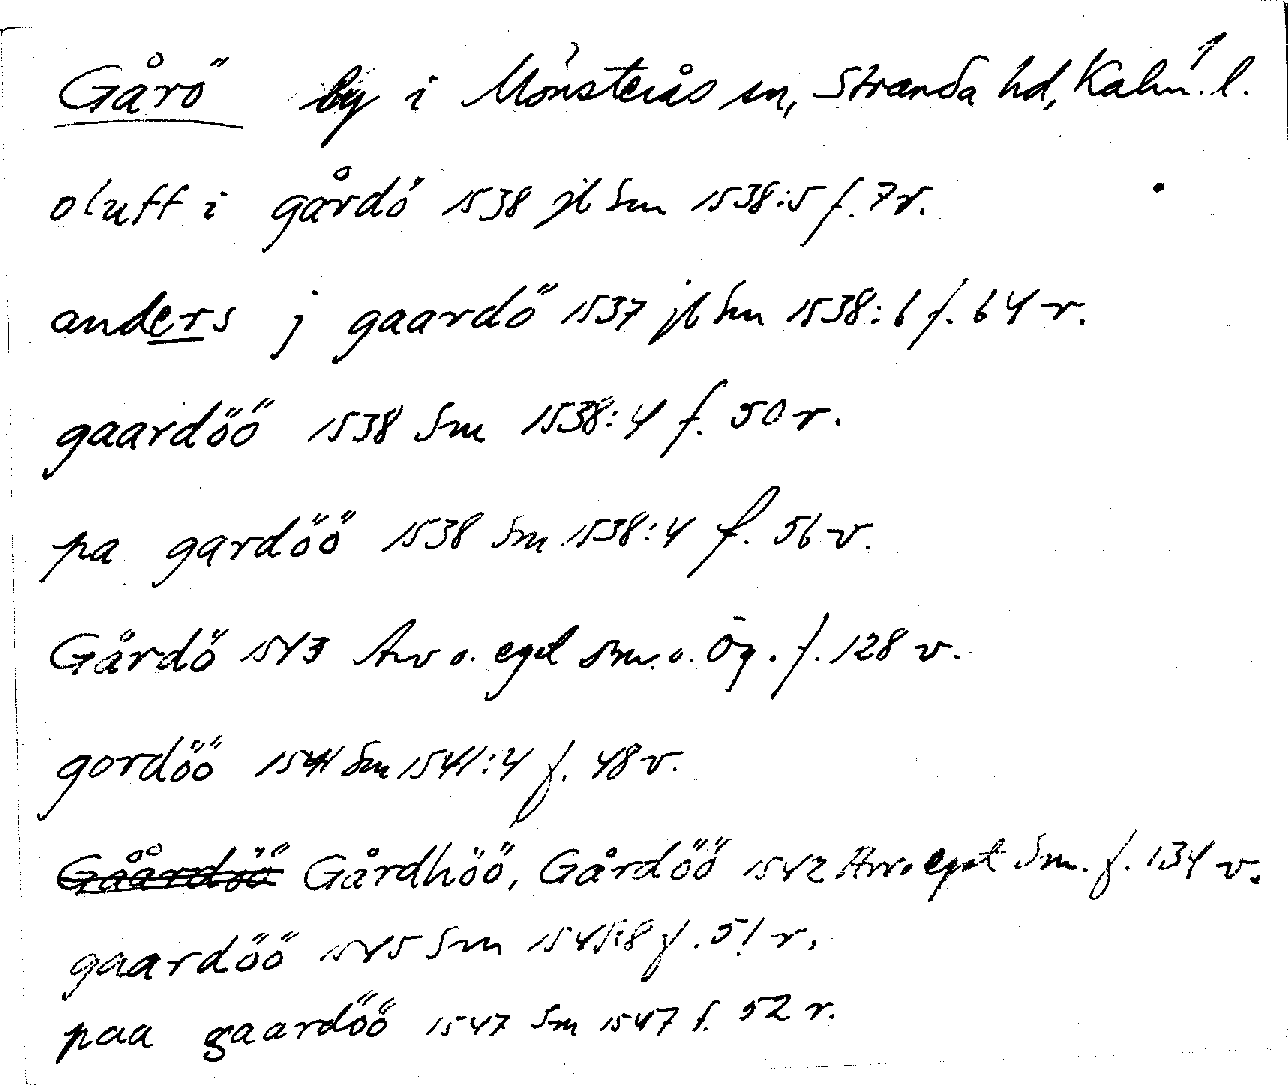 Gårö by i Mönsterås sn, Stranda hd, Kalm. l.
oluff i gårdö 1538 jb Sm 1538:5 f. 7r.
anders j gaardö 1537 jb Sm 1538:6 f. 64 r.
gaardöö 1538 Sm 1538:4 f. 50 r.
pa gardöö 1538 Sm 1538:4 f. 56 v.
Gårdö 1543 Arv o. eget Sm. o. Ög. f. 128 v.
gordöö 1541 Sm 1541:4 f. 48 v.
Gåårdöö Gårdhöö, Gårdöö 1542 Arv o eget Sm. f. 134 v.
gaardöö 1545 Sm 1545:8 f. 51 r.
paa gaardöö 1547 Sm 1547 f. 52 r.